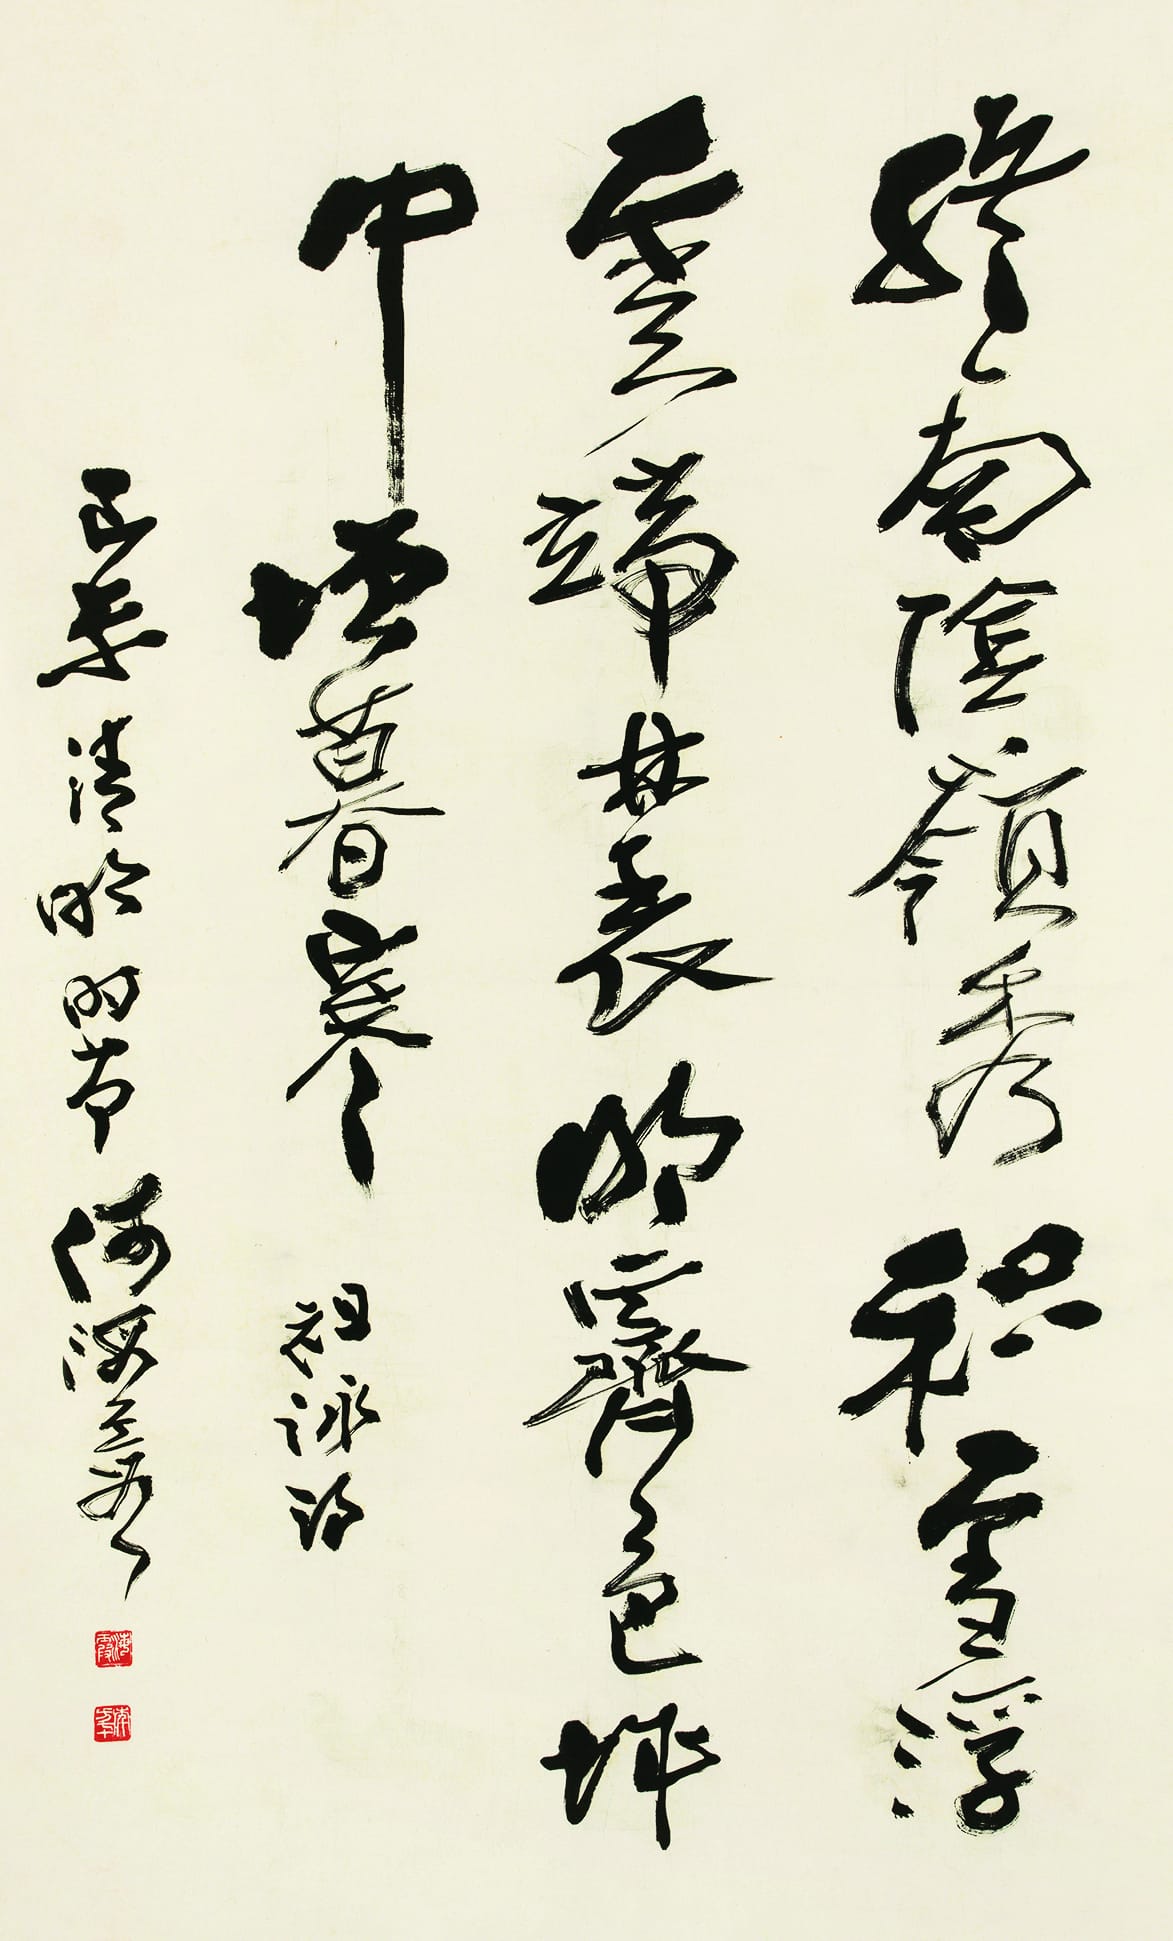 終南陰嶺秀積雪浮
雲端林表明霽色城
中增暮寒 祖詠詩
清明时节 何海霞
海霞